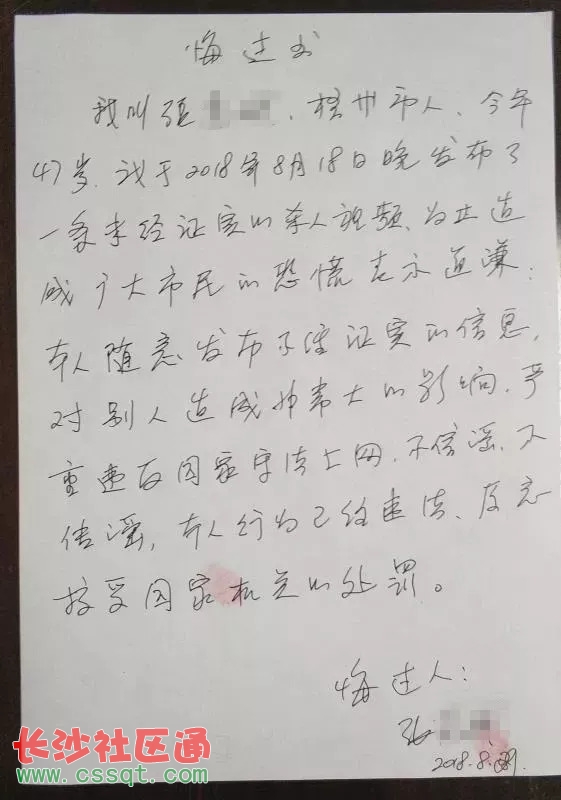 悔过书
我叫张 、梧州市人、今年
47岁、我于2018年8月18日晚发布了
一条未经证实的杀人视频、为此造
成广大市民的恐慌表示道谦:
本人随意发布不经证实的信息,
对别人造成非常大的影响,严
重违反国家守法上网,不信谣、不
传谣,本人行为已经违法、愿意
接受国家机关的处罚。
悔过人:
张
2018.8.
长沙社区通
www.cssqt.com